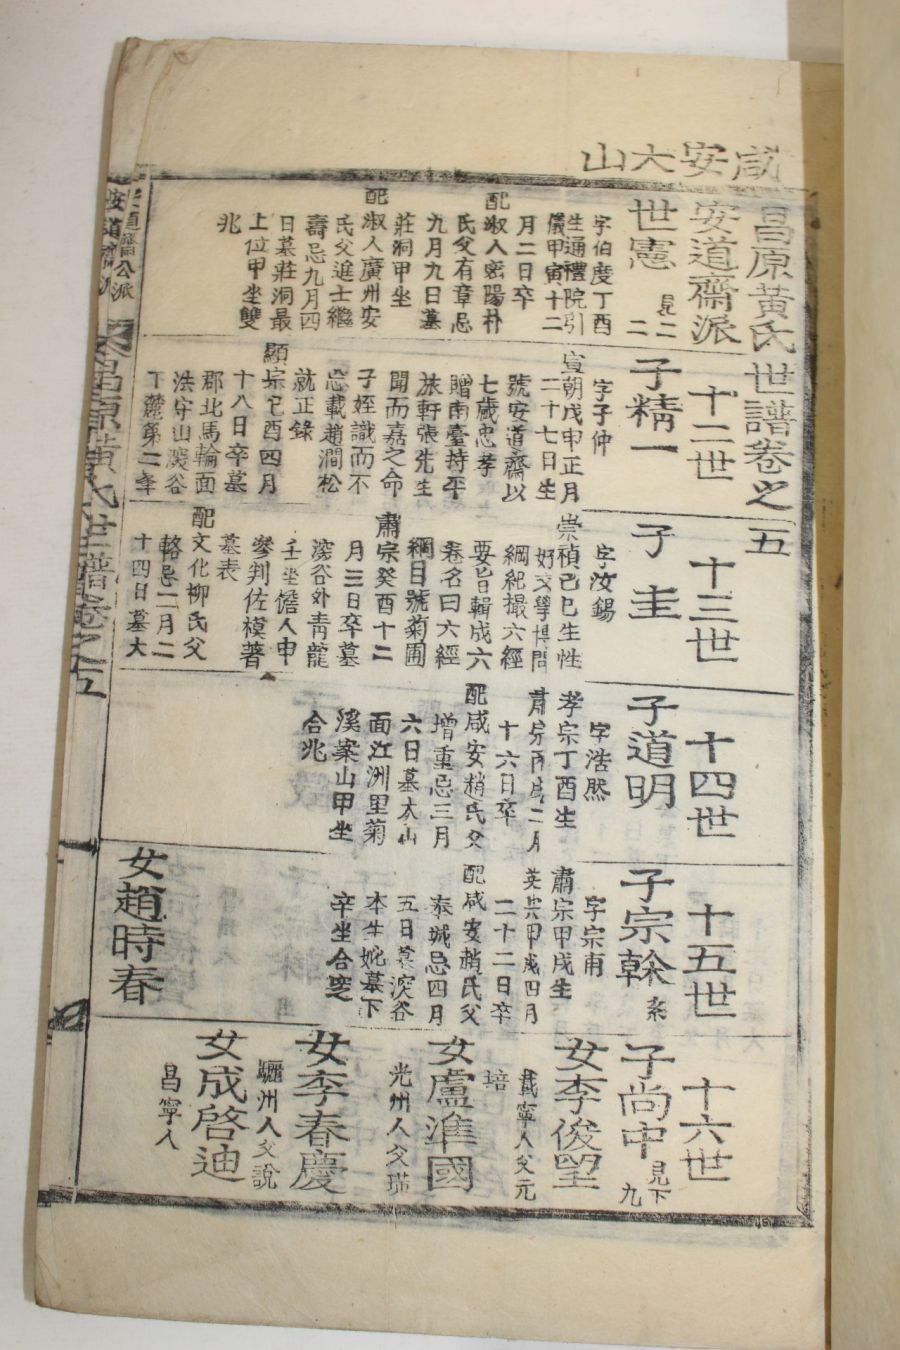 咸安大山
昌原黃氏世譜卷之五
安道齋派
十二世
十三世
十四世
十五世
十六世
世憲
見二
二
字伯度丁酉
生通禮院引
儀甲寅十二
月二日卒
配淑人密陽朴
氏父有章忌
九月九日墓
莊洞甲坐
配淑人廣州安
氏父進士繼
壽忌九月四
日墓莊洞最
上位甲坐雙
兆
子精一
字子仲
宣朝戊申正月
二十七日生
號安道齋以
七歲忠孝
贈南臺持平
旅軒張先生
聞而嘉之命
子姪識而不
忘載趙澗松
就正錄
顯宗己酉四月
十八日卒墓
郡北馬輪面
法守山淡谷
下麓第二峯
子圭
字汝錫
崇禎己巳生性
好文學博問
綱紀撮六經
要旨輯成六
卷名曰六經
綱目號菊圃
肅宗癸酉十二
月三日卒墓
深谷外靑龍
壬坐儋人申
參判佐模著
墓表
配文化柳氏父
輅忌二月二
十四日墓大
子道明
字浩然
孝宗丁酉生
肅宗丙戌二月
十六日卒
配咸安趙氏父
增重忌三月
六日墓大山
面江洲里菊
溪案山甲坐
合兆
子宗榦
系
字宗甫
肅宗甲戌生
英宗甲戌四月
二十二日卒
配咸安趙氏父
泰城忌四月
五日墓深谷
本生妣墓下
辛坐合窆
女趙時春
子尚中
見下
九
女李俊望
載寧人父元
培
女盧準國
光州人父璜
女李春慶
驪州人父說
女成啓迪
昌寧人
昌原黃氏世譜卷之五